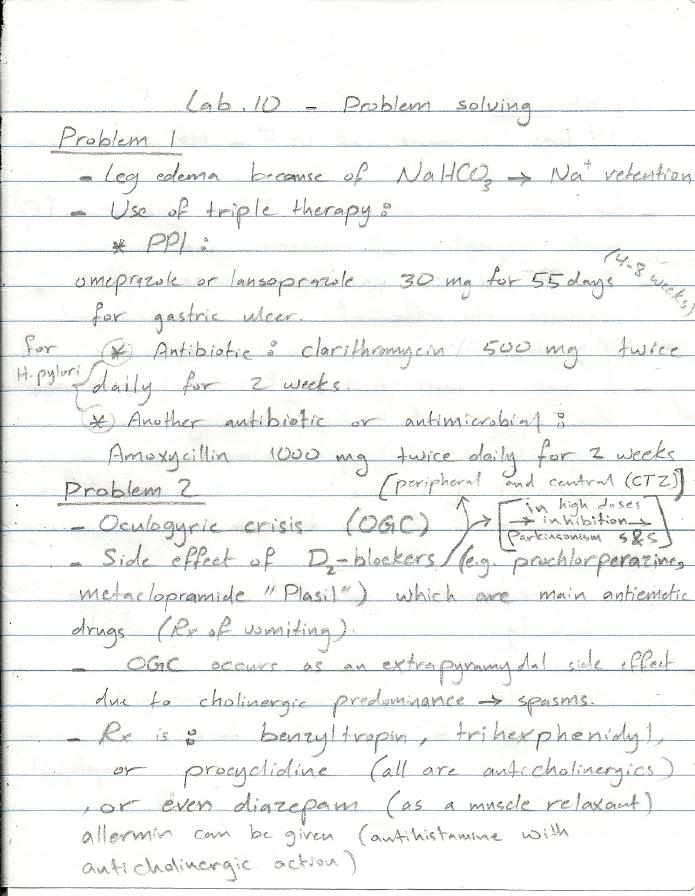 Lab.10 - Problem solving
Problem 1
- Leg edema because of NaHCO3 → Na+ retention
- Use of triple therapy:
* PPI :
omeprazole or lansoprazole 30 mg for 55 days (4-8 weeks)
for gastric ulcer.
for H.pylori
* Antibiotic : clarithromycin 500 mg twice
daily for 2 weeks.
* Another antibiotic or antimicrobial :
Amoxycillin 1000 mg twice daily for 2 weeks
[peripheral and central (CTZ)]
Problem 2
[in high doses
→ inhibition →
Parkinsonism s&s]
- Oculogyric crisis (OGC)
- Side effect of D2-blockers (e.g. prochlorperazine,
metaclopramide "Plasil") which are main antiemetic
drugs (Rx of vomiting).
- OGC occurs as an extrapyramydal side effect
due to cholinergic predominance → spasms.
- Rx is : benzyltropin, trihexphenidyl,
or procyclidine (all are anticholinergics)
, or even diazepam (as a muscle relaxant)
allermin can be given (antihistamine with
anticholinergic action)